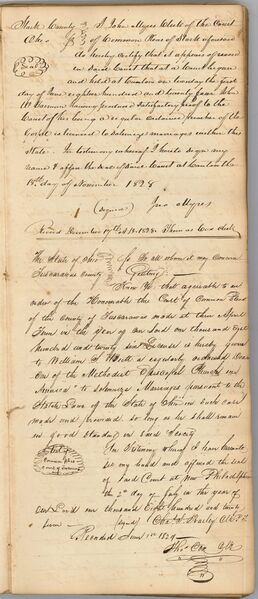 Stark County } I John Myers Clerk of the Court
Ohio } of Common Pleas of Stark aforesaid
do hereby certify that it appears of record
in said Court that at a Court begun
and held at Canton on Monday the first
day of June eighteen hundred and twenty four John
W. having produced satisfactory proof to the
Court of his being a regular ordained preacher of the
Gospel is licensed to solemnize marriages within this
State. In testimony whereof I hereto sign my
name & affix the seal of said Court at Canton the
18th day of November 1828
(signed) Jno Myers
Record December 17th A.D. 1828. Thomas Cox clerk
The State of Ohio } So To all whom it may Concern
Tuscarawas County } Greeting
Know Ye that agreeable to an
order of the Honorable the Court of Common Pleas
of the County of Tuscarawas made at their April
Term in the year of our Lord one thousand eight
hundred and twenty six License is hereby given
to William a regularly ordained Deacon
One of the Methodist Episcopal Church in
America to Solemnize Marriages pursuant to the
Statute Laws of the State of Ohio in such case
made and provided so long as he shall remain
in good standing in said Society
Seal of
Common Pleas
In Testimony whereof I have hereunto
set my hand and affixed the seal
of said Court at New Philadelphia
the 2nd day of July in the year of
our Lord one thousand eight hundred and twenty
(signed) Chas. Clk.
Recorded June 1st 1829
Th. Cox Clk